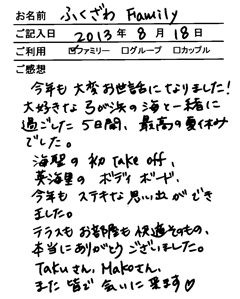 お名前 ふくざわ Family
ご記入日 2013年 8月 18日
ご利用 ☑ファミリー □グループ □カップル
ご感想
今年も大変お世話になりました!
大好きな弓が浜の海と一緒に
過ごした5日間、最高の夏休み
でした。
海聖の初 take off、
英海里の ボディボード、
今年も ステキな思い出ができ
ました。
テラスもお部屋も快適そのもの、
本当にありがとうございました。
Takuさん、Makoさん、
また皆で会いに来ます♡